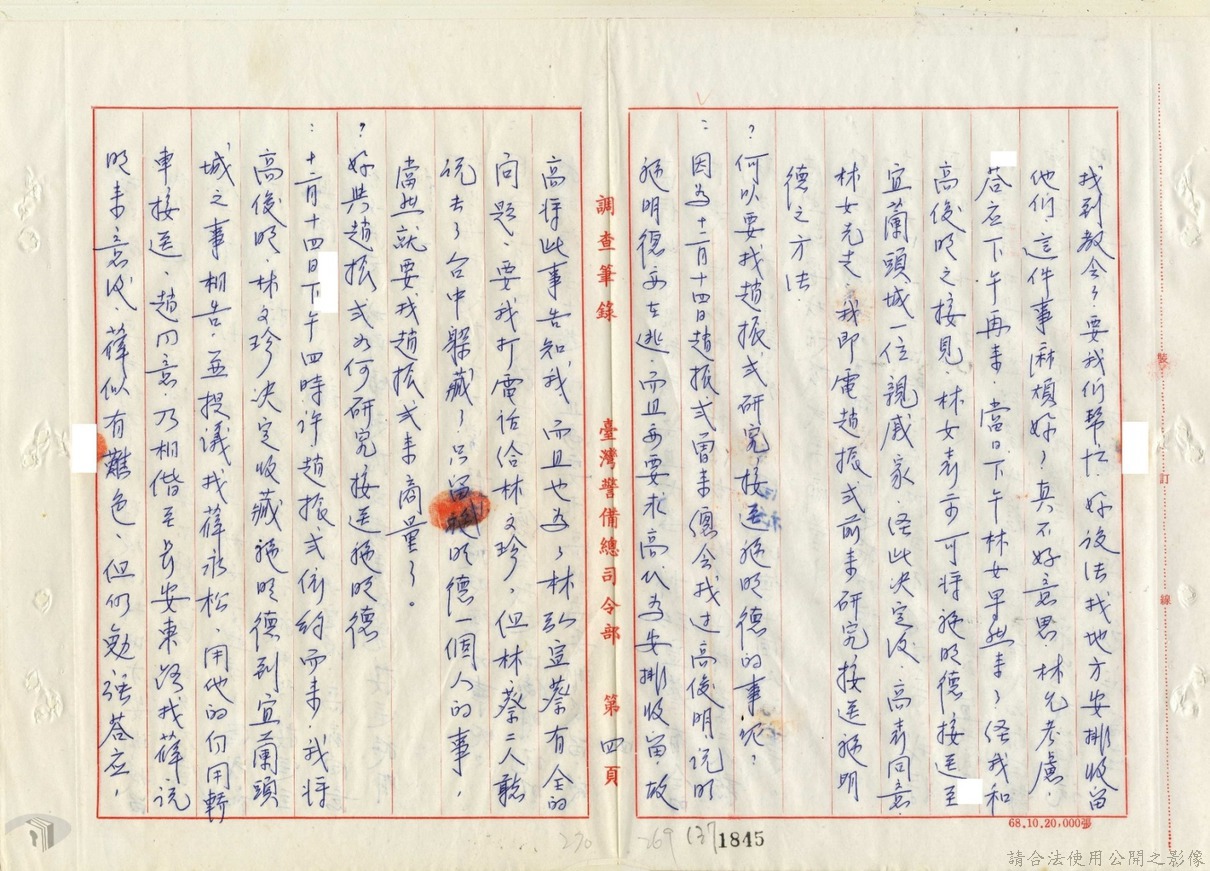 找到教会了要我們帮忙、好設法找地方安排收留
他們、這件事麻煩好了真不好意思、林允考慮、
荅应下午再来、當日下午林女早些来了經我和
高俊明之接見、林女表示可将施明德接送至
宜蘭頭城一位親戚家、經此決定後、高表同意、
林女先走、我即電趙振式前来研究接送施明
德之方法、
？何以要找趙振式研究接送施明德的事呢？
：因為十二月十四日趙振式曾来總会找过高俊明説明
施明德要在逃、而且要要求高代為安排收留、故
調查筆錄　臺灣警備總司令部　第四頁
高将此事告知我、而且也為了林弘宣蔡有全的
问題、要我打電話给林文珍，但林、蔡二人聽
説去了台中躲藏了、只留施明德一個人的事，
當然就要找趙振式来商量了。
？妳與趙振式如何研究接送施明德
：十二月十四日下午四時许趙振式依約而来、我将
高俊明、林文珍决定收藏施明德到宜蘭頭
城之事相告、並提議找薛永松、用他的自用轎
車接送、趙同意、乃相偕至長安東路找薛説
明来意後、薛似有難色、但仍勉强荅应，
裝
訂
線
68.10.20,000張
270
269
(137)
1845
請合法使用公開之影像